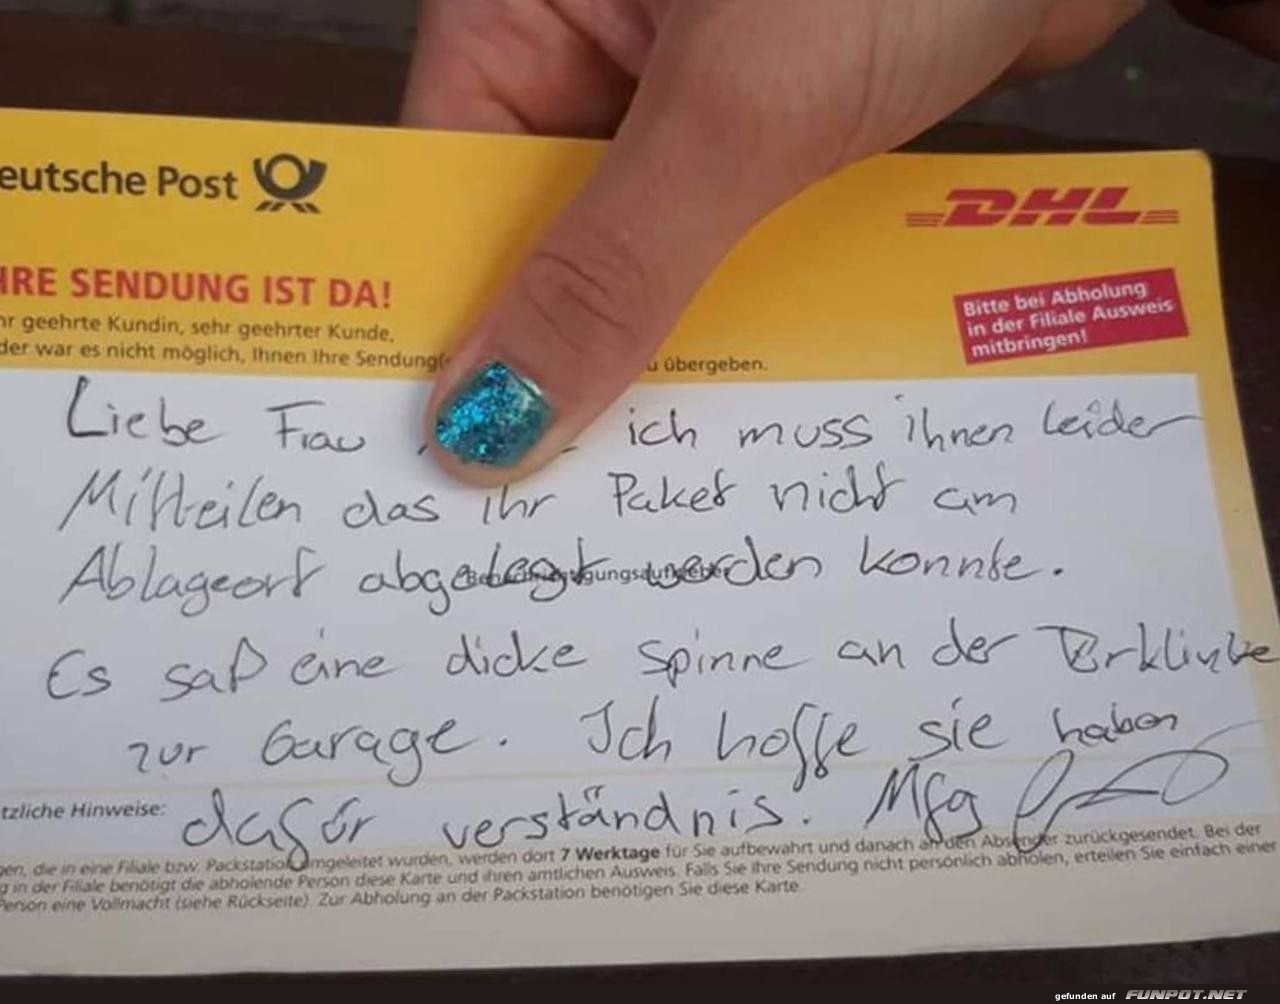 eutsche Post
DHL
IHRE SENDUNG IST DA!
hr geehrte Kundin, sehr geehrter Kunde,
der war es nicht möglich, Ihnen Ihre Sendung(e u übergeben.
Bitte bei Abholung
in der Filiale Ausweis
mitbringen!
Liebe Frau ich muss ihnen leider
Mitteilen das ihr Paket nicht am
Ablageort abgelegt werden konnte.
Es saß eine dicke spinne an der Türklinke
zur Garage. Ich hoffe sie haben
tzliche Hinweise: dafür verständnis. Mfg
gen, die in eine Filiale bzw. Packstation umgeleitet wurden, werden dort 7 Werktage für Sie aufbewahrt und danach an den Absender zurückgesendet. Bei der
g in der Filiale benötigt die abholende Person diese Karte und ihren amtlichen Ausweis. Falls Sie Ihre Sendung nicht persönlich abholen, erteilen Sie einfach einer
Person eine Vollmacht (siehe Rückseite). Zur Abholung an der Packstation benötigen Sie diese Karte.
gefunden auf FUNPOT.NET